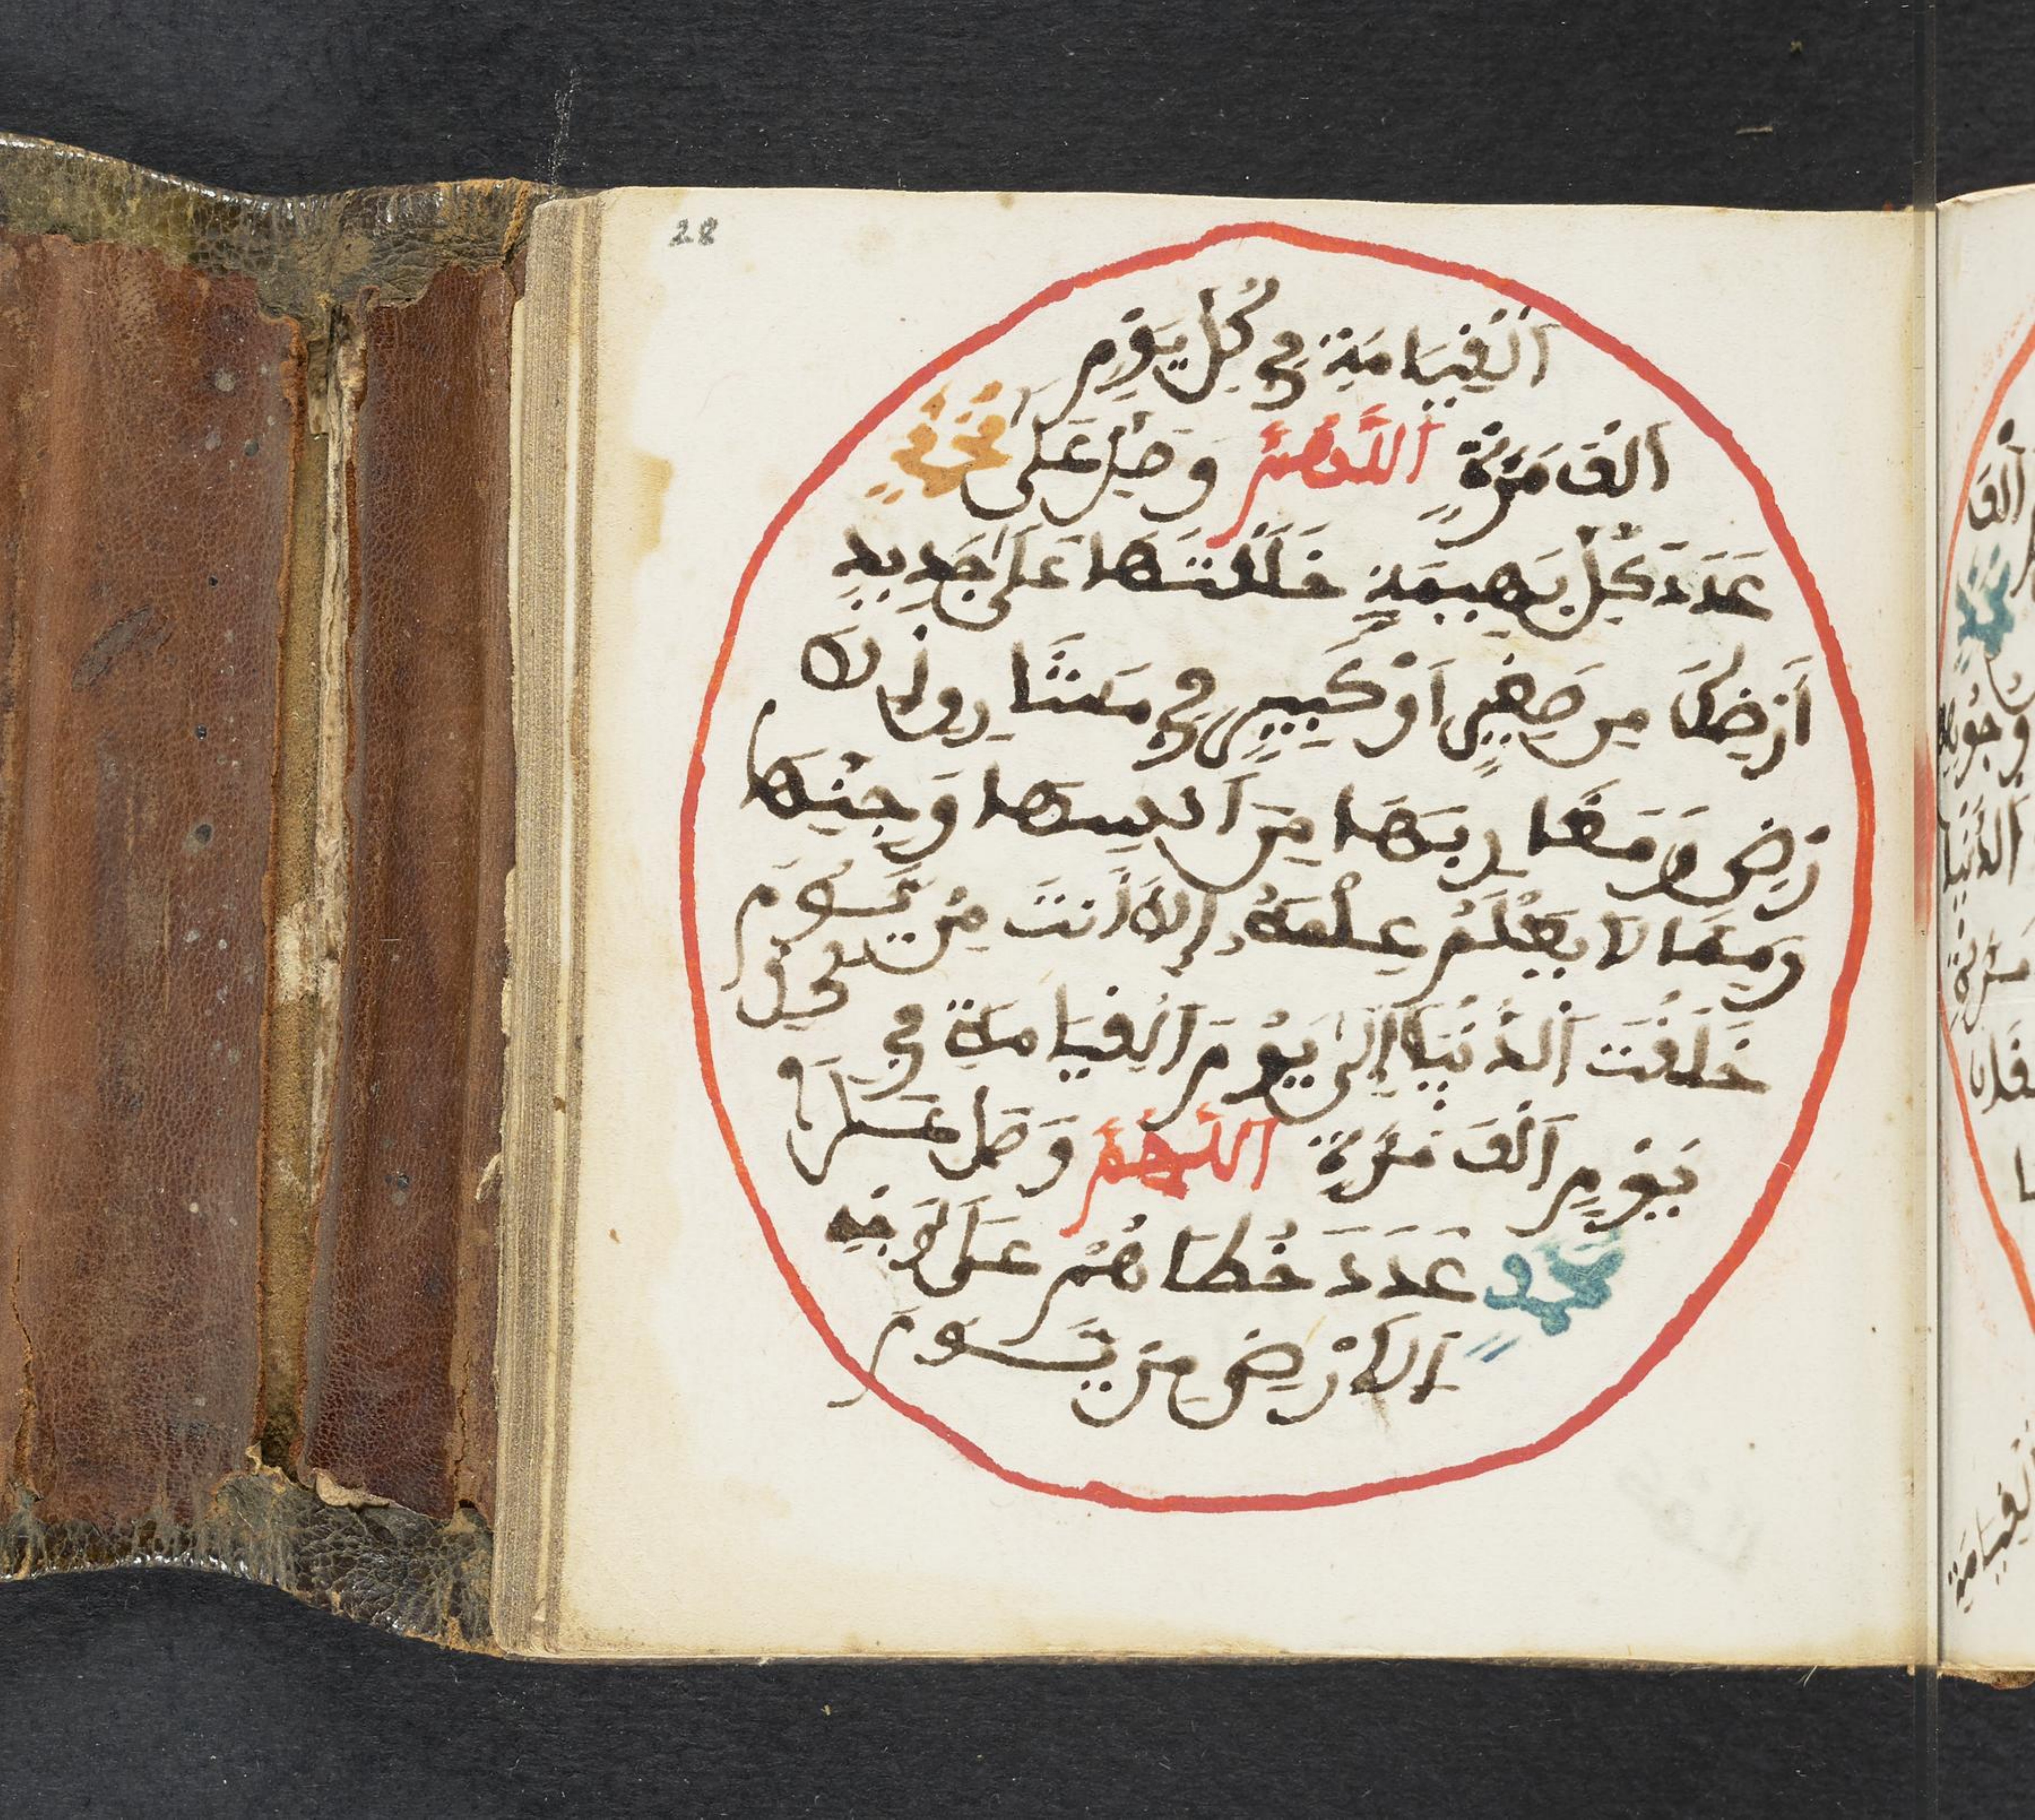 28
الْقِيَامَةِ فِي كُلِّ يَوْمٍ
أَلْفَ مَرَّةٍ اللَّهُمَّ وَصَلِّ عَلَى مُحَمَّدٍ
عَدَدَ كُلِّ بَهِيمَةٍ خَلَقْتَهَا عَلَى جَدِيدِ
أَرْضِكَ مِن صَغِيرٍ أَوْ كَبِيرٍ فِي مَشَارِقِ الْأَ
رْضِ وَمَغَارِبِهَا مِنَ انسِهَا وَجِنِّهَا
وَمِمَّا لَا يَعْلَمُ عِلْمَهُ إِلَّا أَنتَ مِنْ يَوْمَ
خَلَقْتَ الدُّنْيَا إِلَى يَوْمِ الْقِيَامَةِ فِي كُلِّ
يَوْمٍ أَلْفَ مَرَّةٍ اللَّهُمَّ وَصَلِّ عَلَى
مُحَمَّدٍ عَدَدَ خُطَاهُمْ عَلَى وَجْهِ
الْأَرْضِ مِنْ يَوْمَ